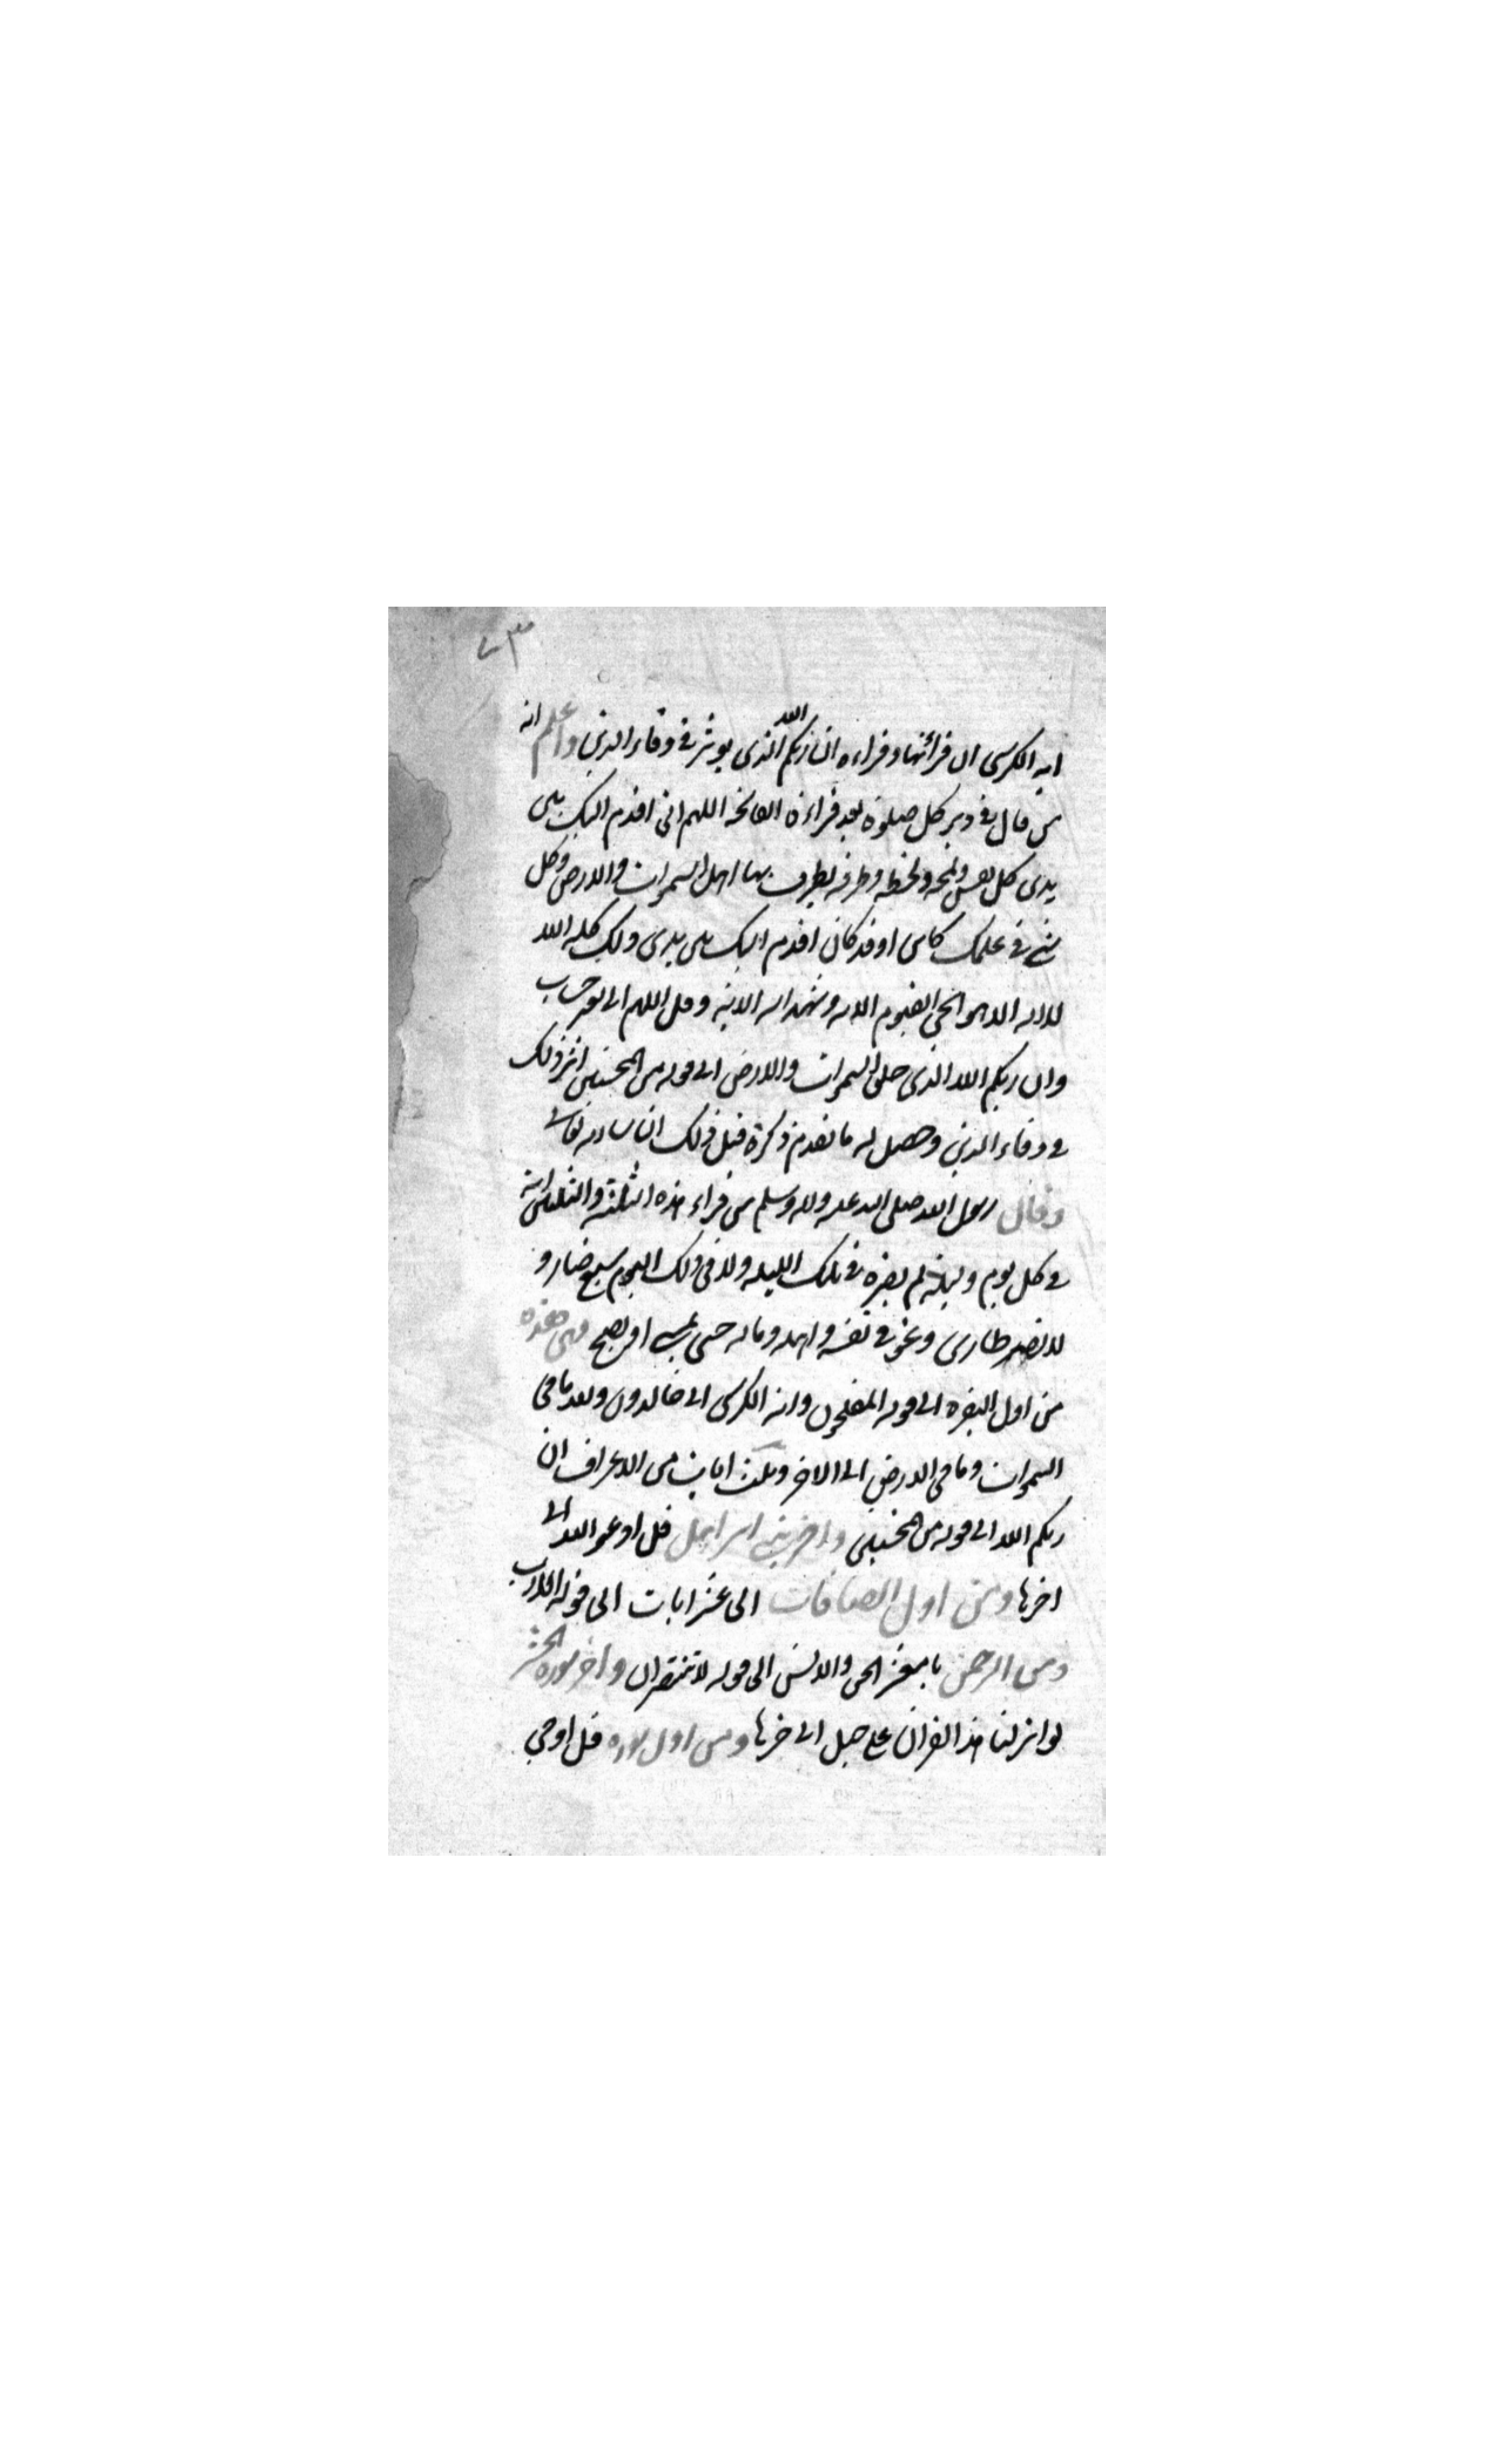 ٧٣
اية الكرسى ان قرائتها وقراءة ان ربكم الله الذى يوثر فى وفاء الدين واعلم انه
من قال فى دبر كل صلوة بعد قراءة الفاتحه اللهم انى اقدم اليك بين
يدى كل نفس ولمحه ولحظه وطرفه يطرف بها اهل السموات والارض وكل
شى فى علمك كاين او قد كان اقدم اليك بين يدى ذلك كله الله
لا اله الا هو الحى القيوم الايه وشهد الله الايه وقل اللهم الى بغير حساب
وان ربكم الله الذى خلق السموات والارض الى قوله من المحسنين اثر ذلك
فى وفاء الدين وحصل له ما تقدم ذكره قبل ذلك ان شاء الله تعالى
وقال رسول الله صلى الله عليه واله وسلم من قراء هذه الثلثة والثلثين اية
فى كل يوم وليلة لم يضره فى تلك الليله ولا فى ذلك اليوم سبع ضار و
لا لص طارى وعوفى فى نفسه واهله وماله حتى يمسى او يصبح وهى هذه
من اول البقره الى قوله المفلحون واية الكرسى الى خالدون وبعد ما فى
السموات وما فى الارض الى الاخر وثلث ايات من الاعراف ان
ربكم الله الى قوله من المحسنين واخر بنى اسرائيل قل ادعوا الله الى
اخرها ومن اول الصافات الى عشر ايات الى قوله لازب
ومن الرحمن يا معشر الجن والانس الى قوله لا تنتصران واخر سورة الحشر
لو انزلنا هذا القران على جبل الى اخرها ومن اول سورة قل اوحي